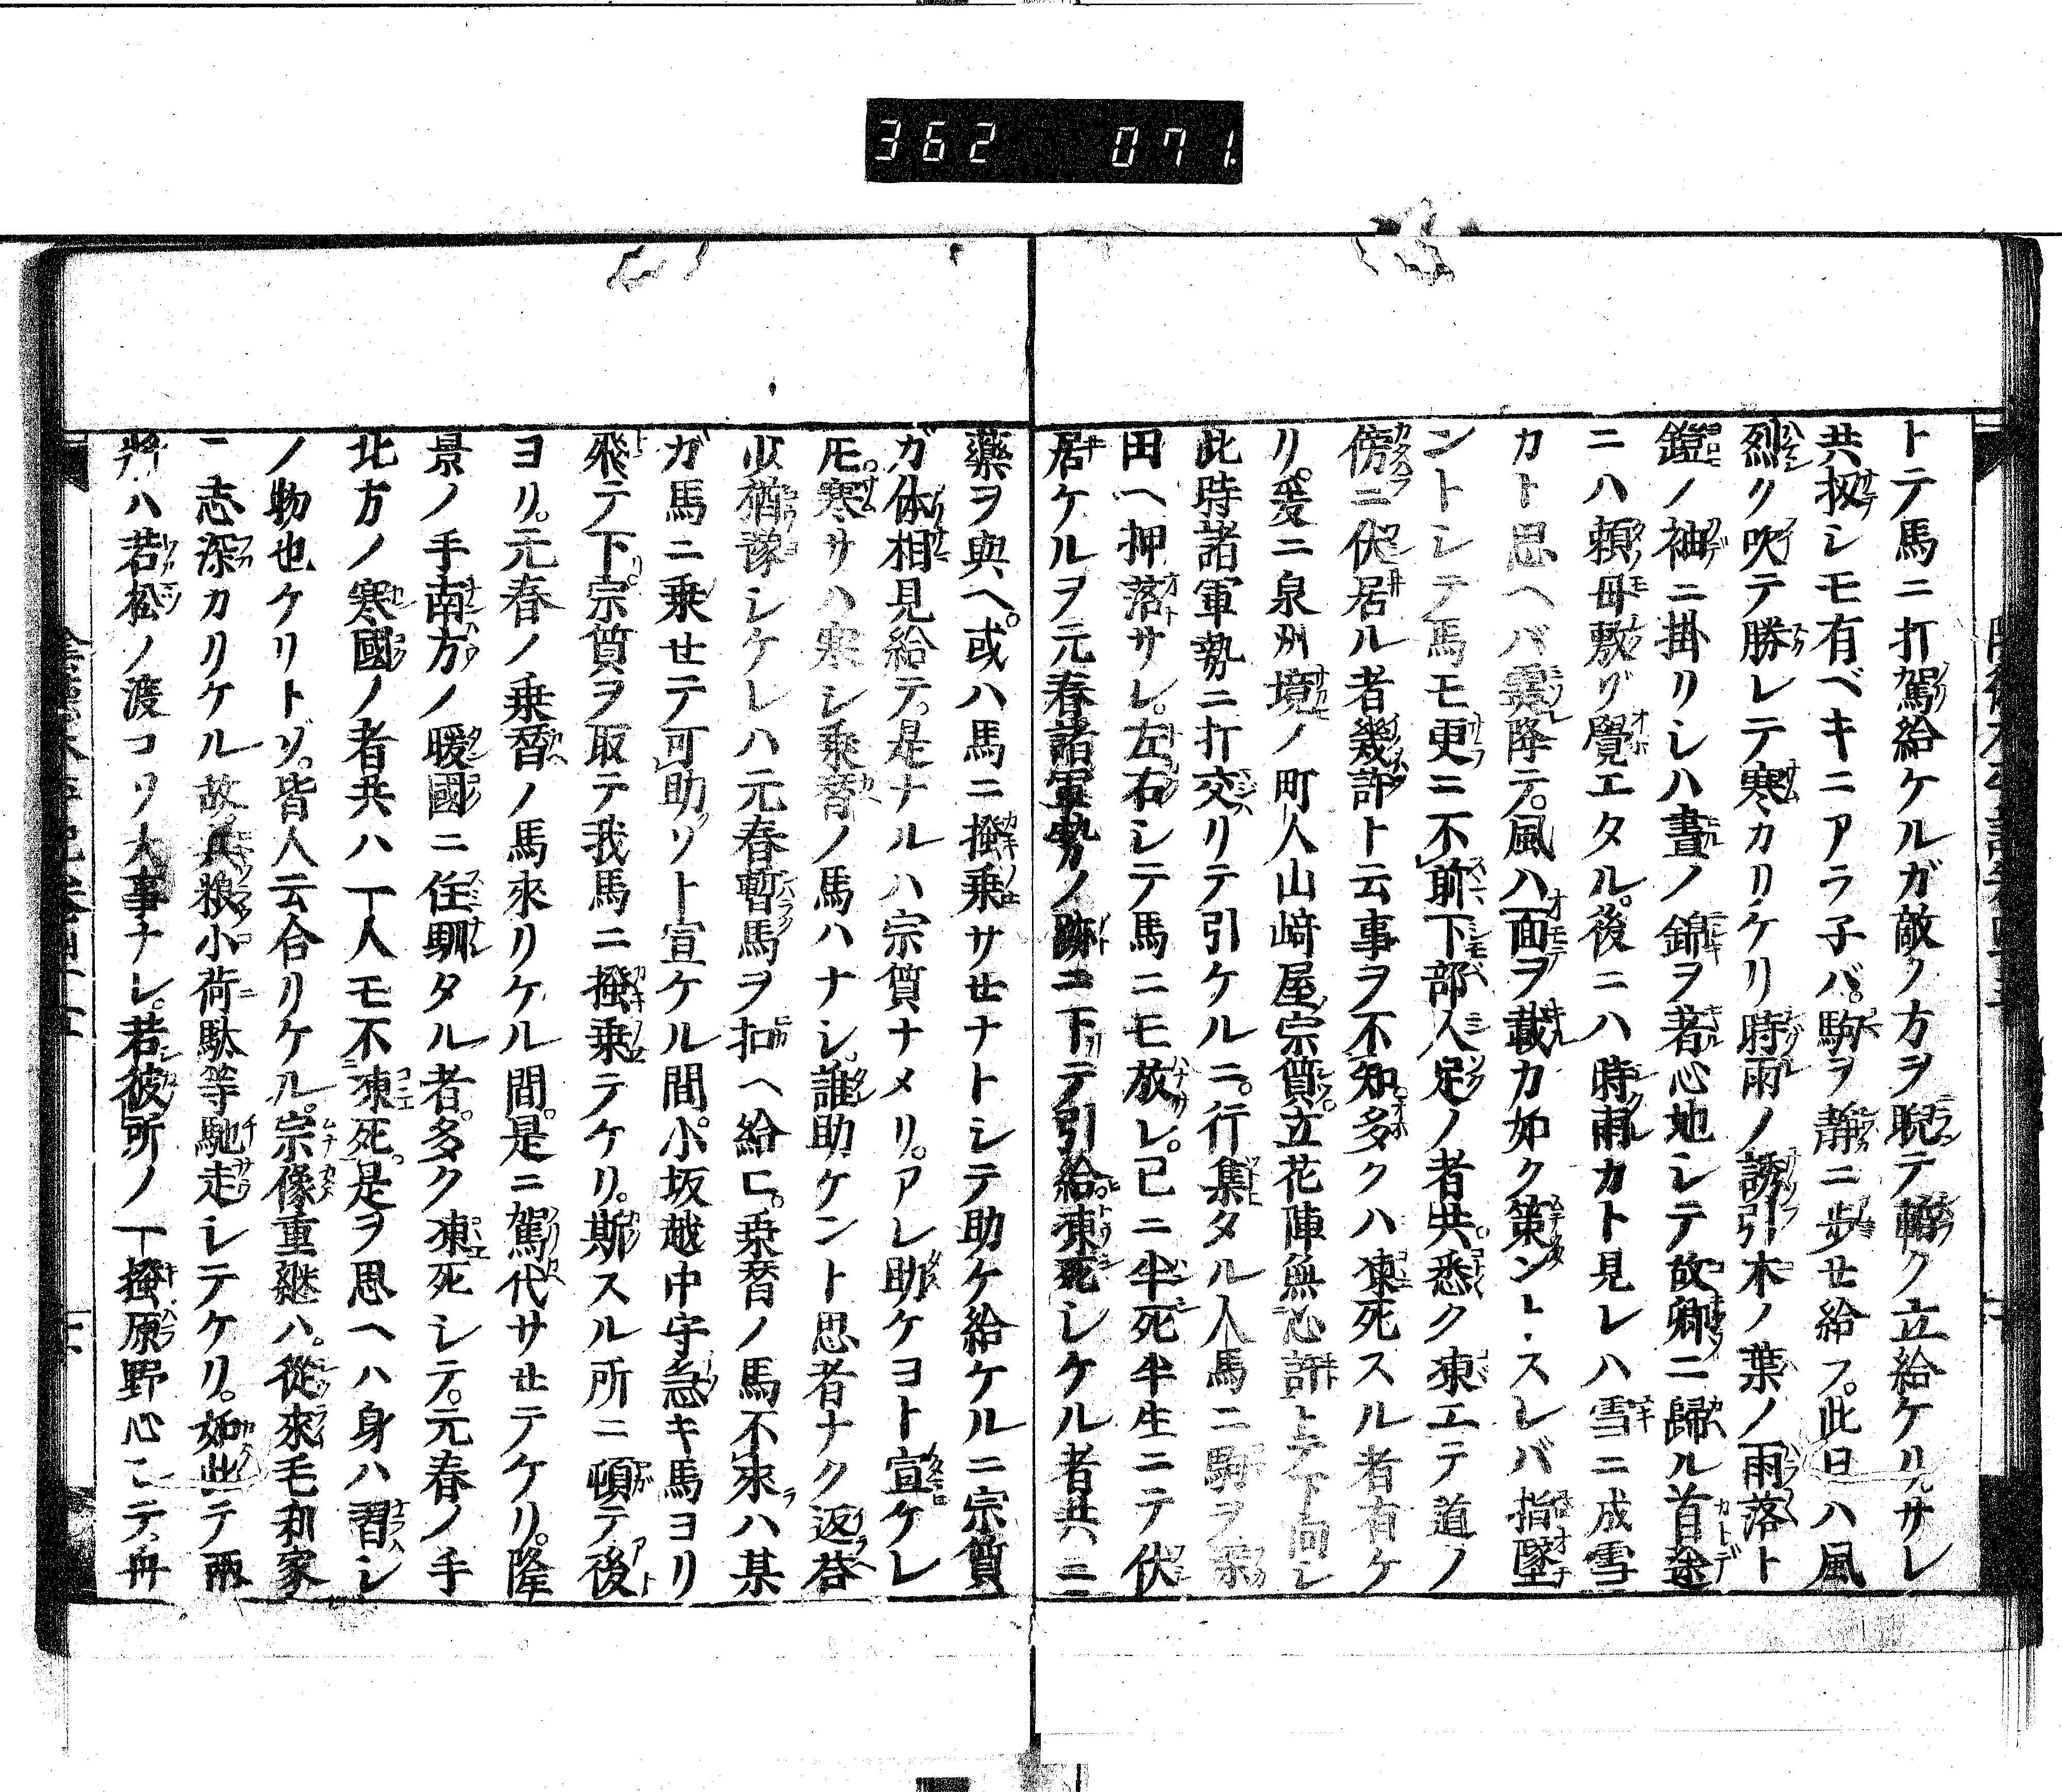 362 071.
トテ馬ニ打駕給ケルガ敵ノ方ヲ睨テ轡ク立給ケリ。サレ
共扱シモ有ベキニアラ子バ。駒ヲ靜ニ歩セ給フ。此日ハ風
烈ク吹テ勝レテ寒カリケリ時雨ノ誘引木ノ葉ノ雨落ト
鎧ノ袖ニ掛リシハ晝ノ錦ヲ著心地シテ故郷ニ歸ル首途
ニハ頼母敷ゾ覺エタル。後ニハ時雨カト見レハ雪ニ成雪
カト思ヘバ霙降テ。風ハ面ヲ截カ如ク策ントスレバ指墜
ントシテ馬モ更ニ不前下部人足ノ者共。悉ク凍エテ道ノ
傍ニ伏居ル者幾許ト云事ヲ不知。多クハ凍死スル者有ケ
リ。爰ニ泉州境ノ町人山崎屋宗質。立花陣無心許トテ下向シ
此時諸軍勢ニ打交リテ引ケルニ。行集タル人馬ニ駒ヲ乗
田ヘ押落サレ。左右シテ馬ニモ放レ。已ニ半死半生ニテ伏
居ケルヲ元春諸軍勢ノ跡ニ下テ引給。凍死シケル者共ニ
藥ヲ與ヘ。或ハ馬ニ掻乗サせナトシテ助ケ給ケルニ宗質
ガ体相見給テ。是ナルハ宗質ナメリ。アレ助ケヨト宣ケレ
𪜈。寒サハ寒シ乗替ノ馬ハナシ。誰助ケント思者ナク返荅
少猶豫シケレハ元春暫馬ヲ扣ヘ給ヒ。乗替ノ馬不來ハ某
ガ馬ニ乗せテ可助ソト宣ケル間。小坂越中守急キ馬ヨリ
飛テ下宗質ヲ取テ我馬ニ掻乗テケリ。斯スル所ニ頓テ後
ヨリ。元春ノ乗替ノ馬來リケル間。是ニ駕代サせテケリ。隆
景ノ手南方ノ暖國ニ住馴タル者。多ク凍死シテ。元春ノ手
北方ノ寒國ノ者共ハ一人モ不凍死。是ヲ思ヘハ身ハ習シ
ノ物也ケリトゾ。皆人云合リケル。宗像重継ハ。從來毛利家
ニ志深カリケル故。兵粮小荷駄等馳走シテケリ。如此テ兩
將ハ若松ノ渡コソ大事ナレ。若彼所ノ一揆原野心ニテ舟